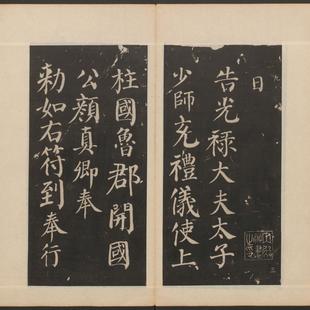 日
告光祿大夫太子
少師充禮儀使上
柱國魯郡開國
公顏真卿奉
勅如右符到奉行